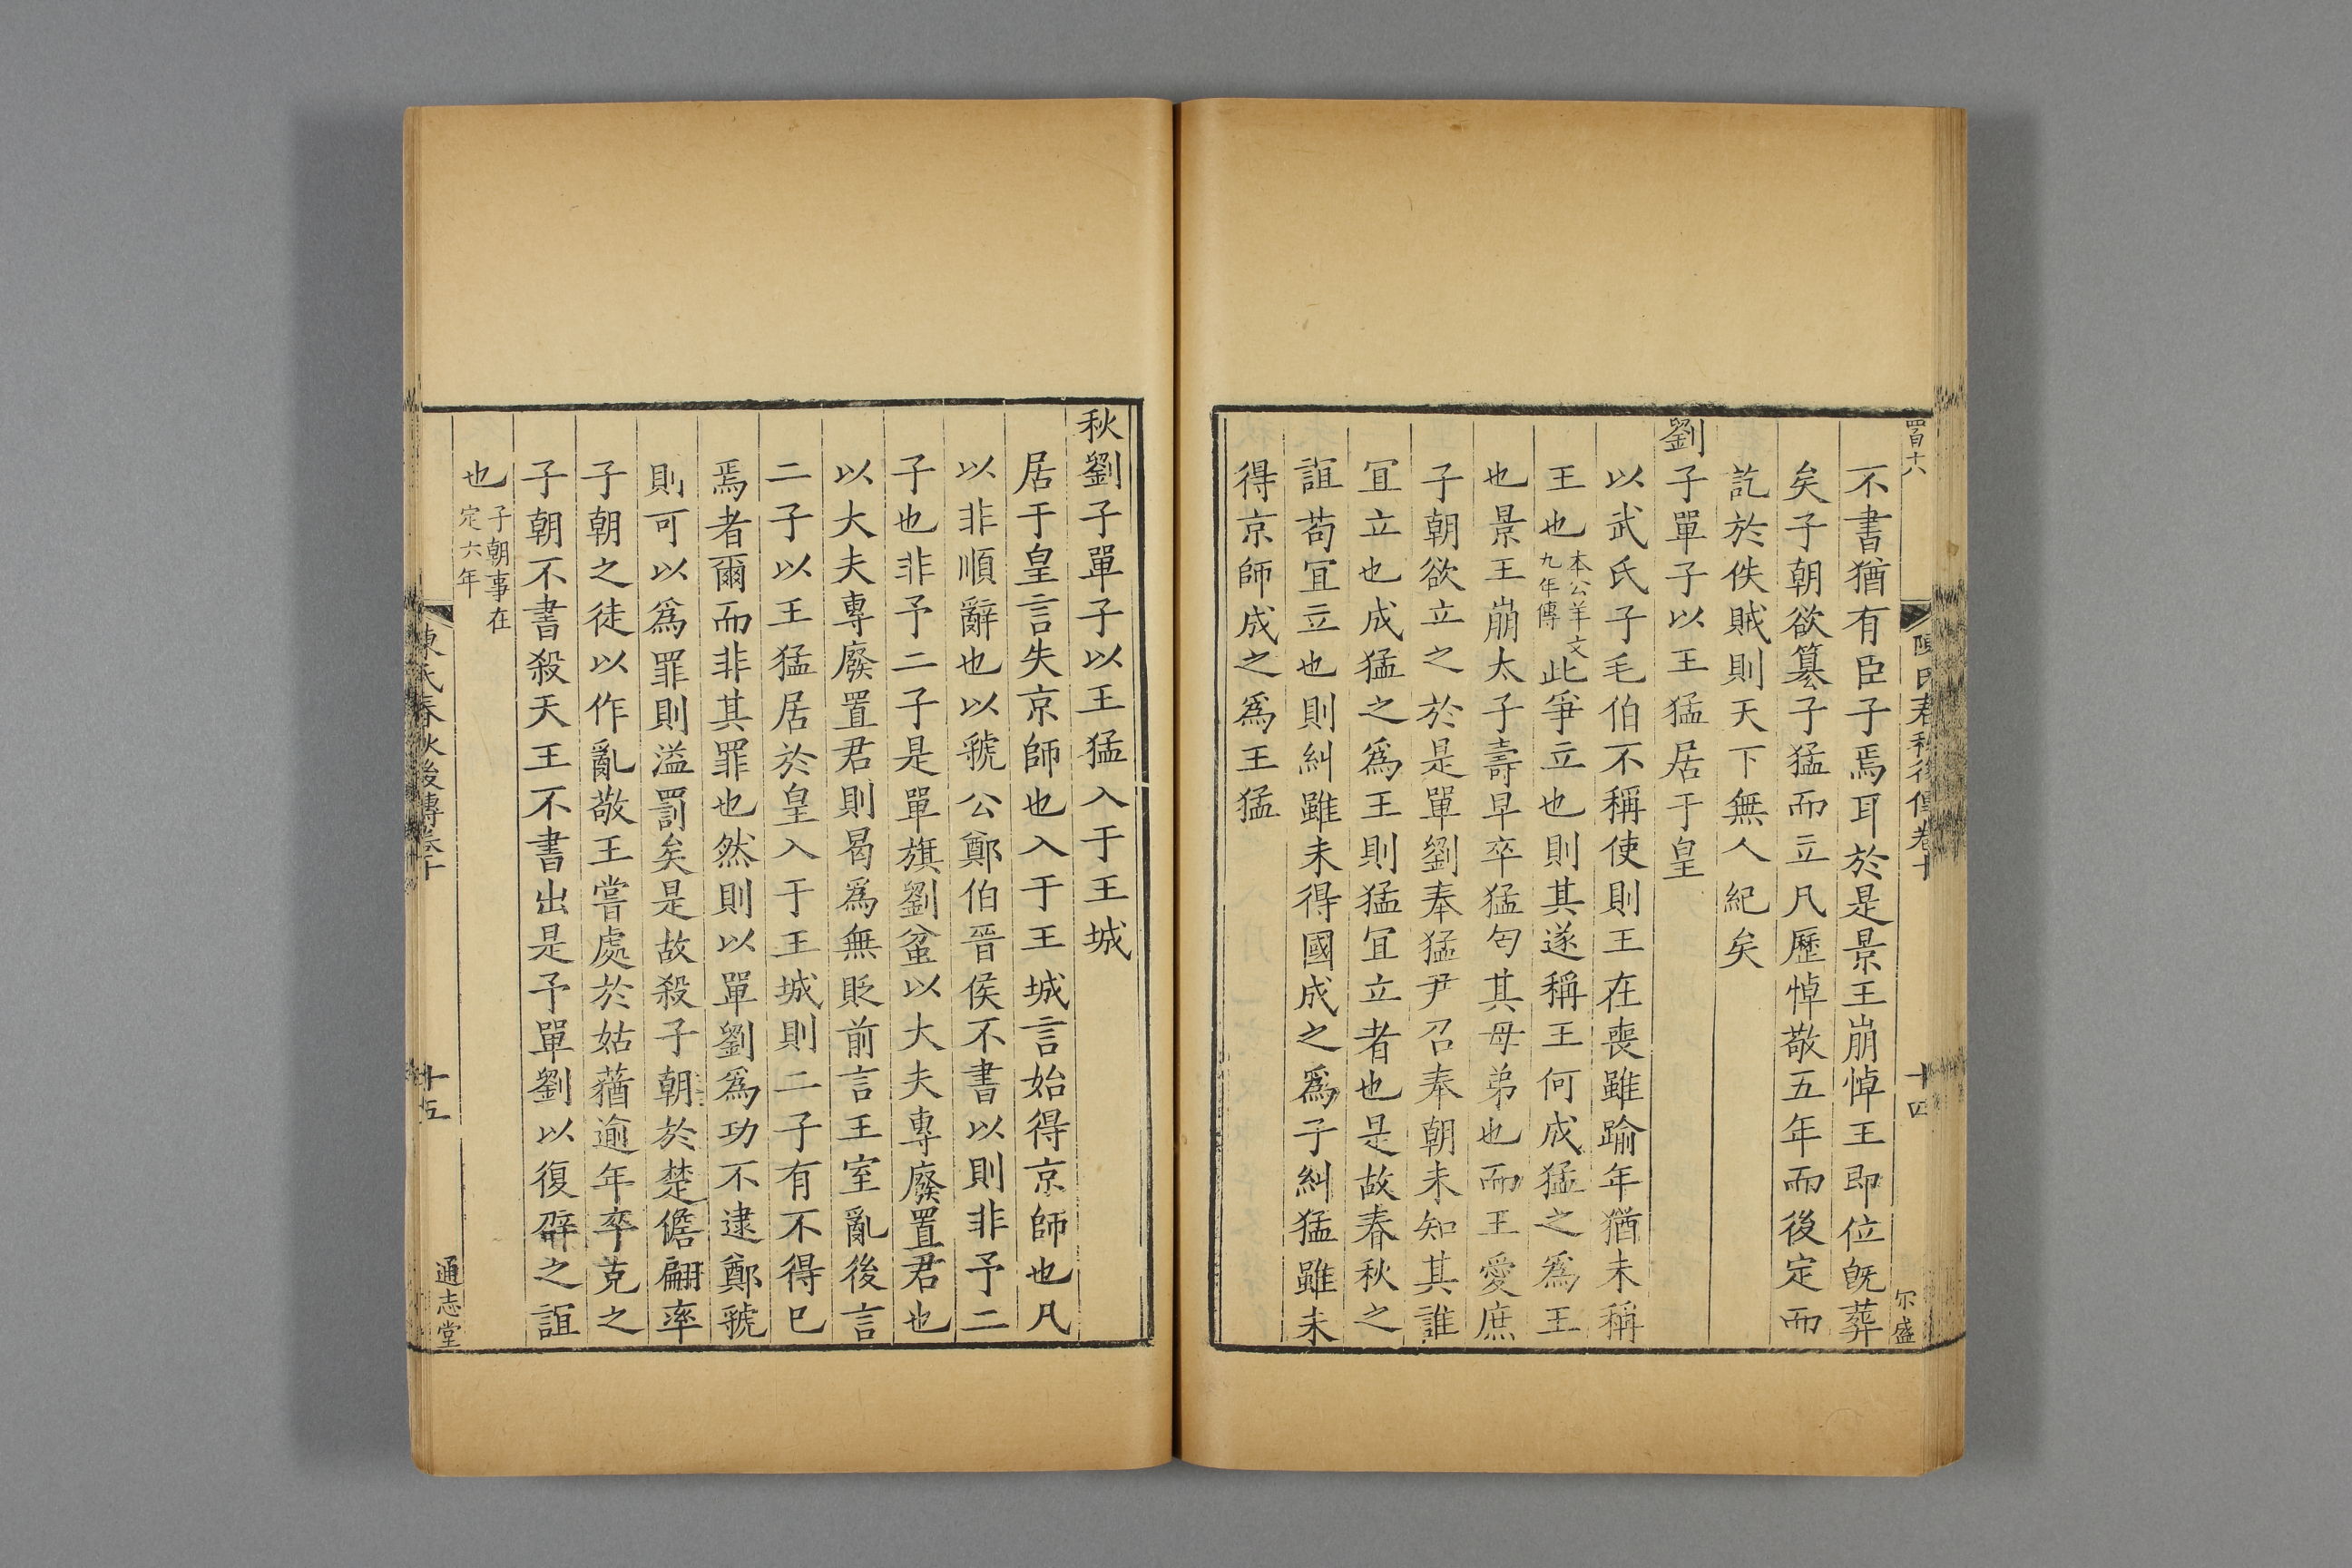 四百十八
陳氏春秋後傳卷十
十四
尔盛
不書猶有臣子焉耳於是景王崩悼王即位旣葬
矣子朝欲簒子猛而立凡歷悼敬五年而後定而
訖於佚賊則天下無人紀矣
劉子單子以王猛居于皇
以武氏子毛伯不稱使則王在喪雖踰年猶未稱
王也本公羊文九年傳此爭立也則其遂稱王何成猛之爲王
也景王崩太子壽早卒猛匄其母弟也而王愛庶
子朝欲立之於是單劉奉猛尹召奉朝未知其誰
冝立也成猛之爲王則猛冝立者也是故春秋之
誼苟冝立也則糾雖未得國成之爲子糾猛雖未
得京師成之爲王猛
秋劉子單子以王猛入于王城
居于皇言失京師也入于王城言始得京師也凡
以非順辭也以虢公鄭伯晉侯不書以則非予二
子也非予二子是單旗劉蚠以大夫專廢置君也
以大夫專廢置君則曷爲無貶前言王室亂後言
二子以王猛居於皇入于王城則二子有不得已
焉者爾而非其罪也然則以單劉爲功不逮鄭虢
則可以爲罪則溢罰矣是故殺子朝於楚儋翩率
子朝之徒以作亂敬王嘗處於姑蕕逾年卒克之
子朝不書殺天王不書出是予單劉以復辟之誼
也子朝事在定六年
陳氏春秋後傳卷十
十五
通志堂